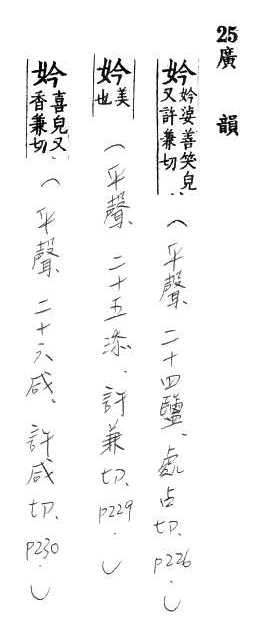 25廣 韻
妗妗婆善笑皃又許兼切.. (平聲、二十四鹽、處占切、p226.)
妗美也 (平聲、二十五添、許兼切、p229.)
妗喜皃又香兼切. (平聲、二十六咸、許咸切、p230.)